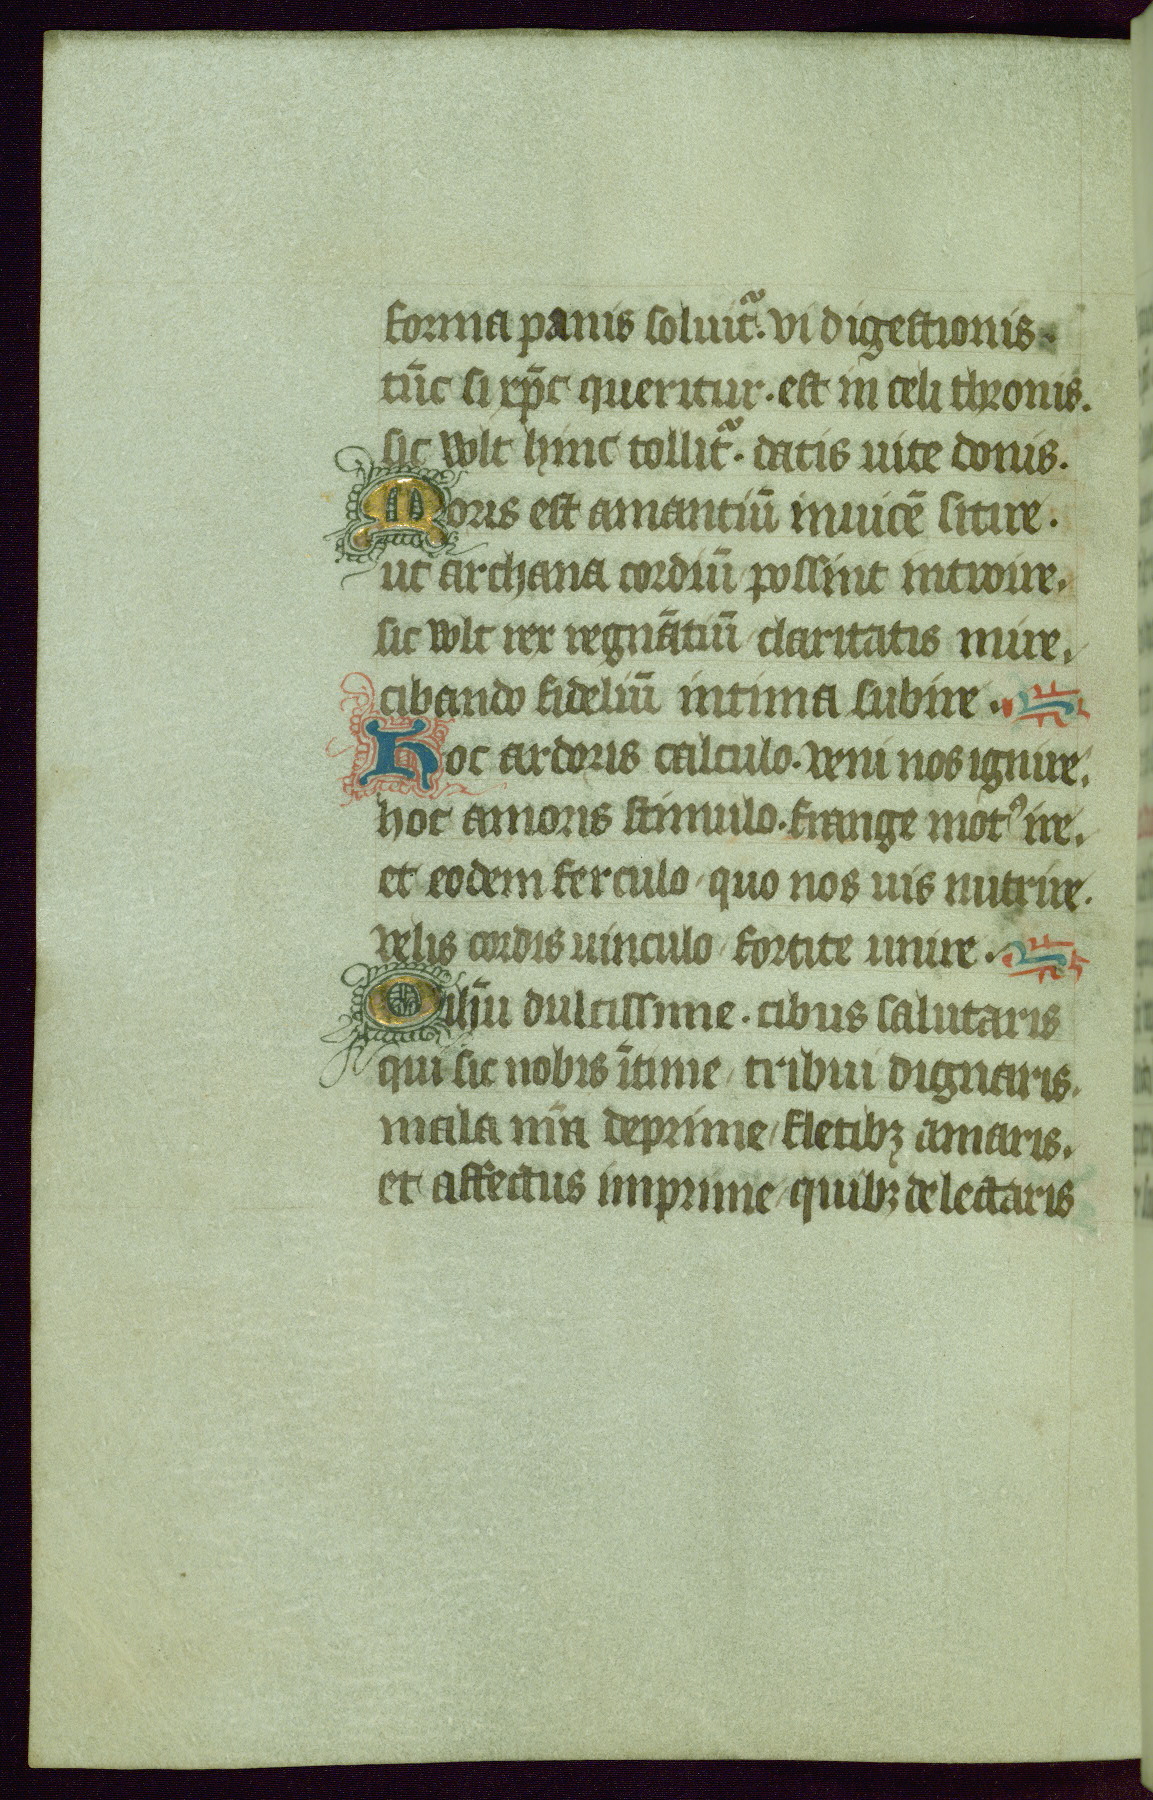 forma panis soluit᷑. vi digestionis.
tūc si xp̄c queritur. est in celi thronis.
sic wlt hinc tollit᷑. datis uite donis.
Moris est amantiū inuicē sitire.
ut archana cordiū possint introire.
sic wlt rex regnātiū / claritatis mire.
cibando fideliū intima subire.
Hoc ardoris calculo. veni nos ignire.
hoc amoris stimulo. frange motꝰ ire.
et eodem ferculo / quo nos uis nutrire.
velis cordis uinculo / fortite unire.
O ihū dulcissime. cibus salutaris
qui sic nobis ītime / tribui dignaris.
mala nr̄a deprime / fletibꝫ amaris.
et affectus imprime / quibꝫ delectaris